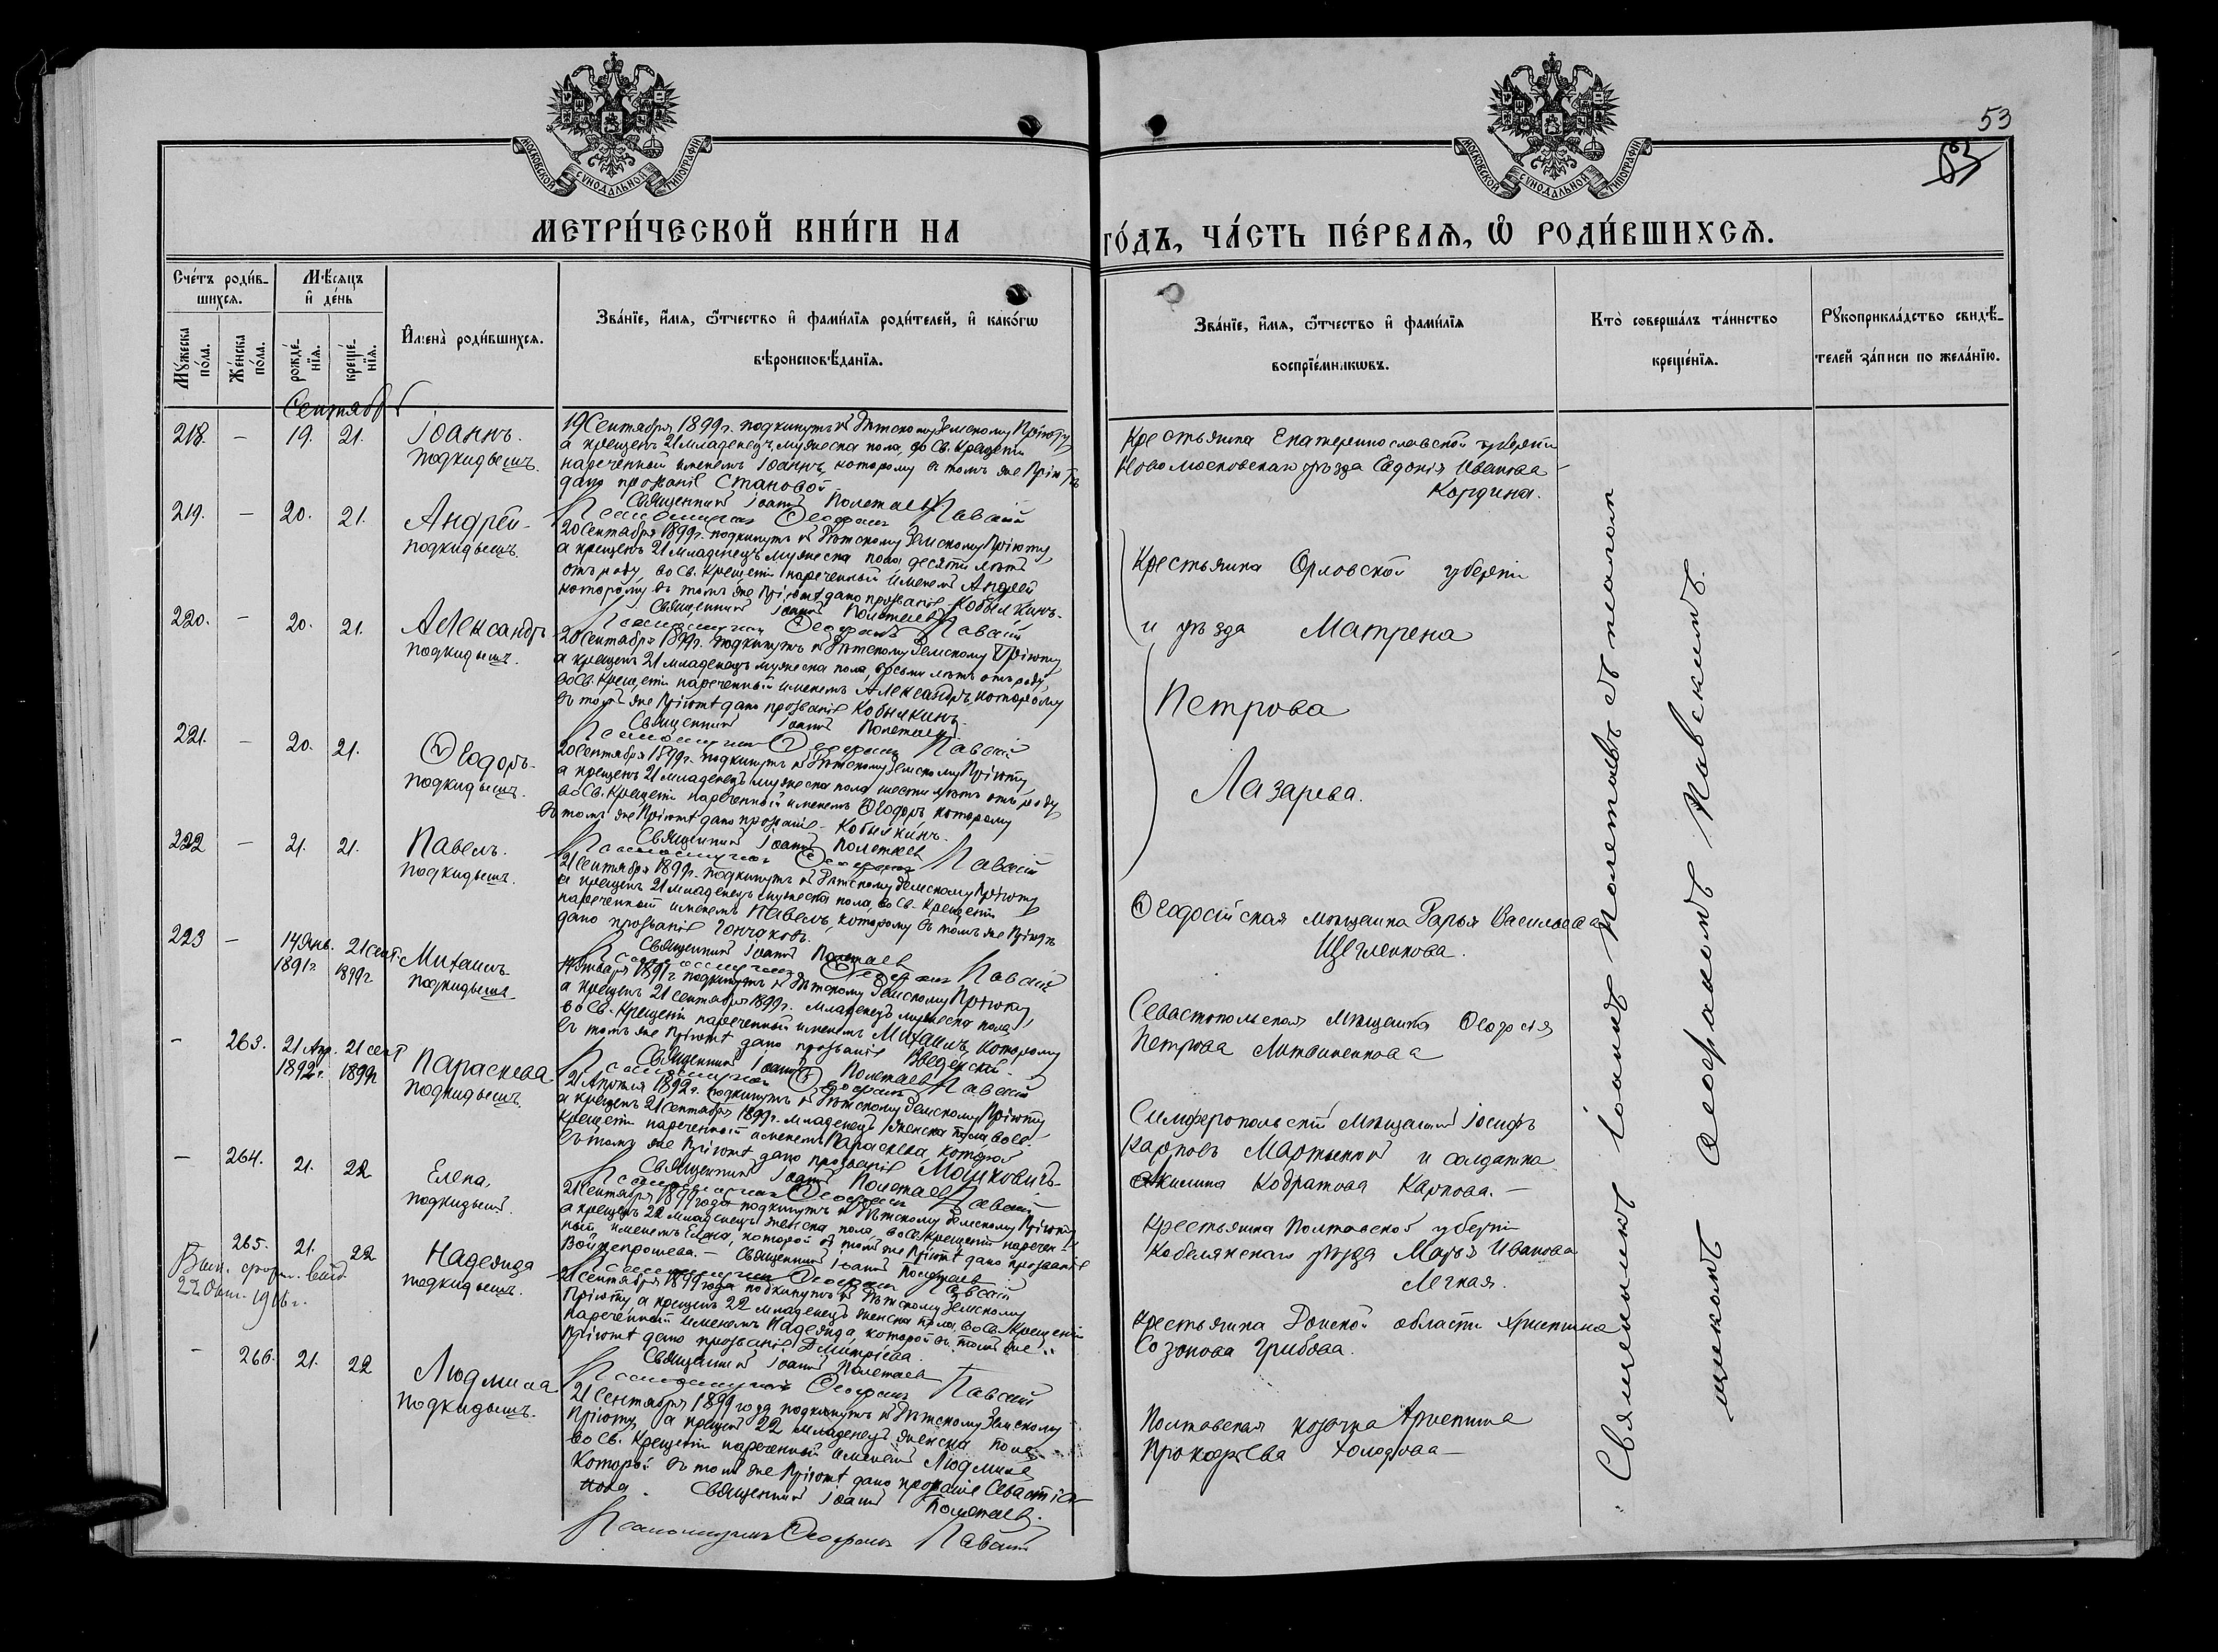 53
53
МОСКОВСКОЙ СѴНОДАЛЬНОЙ ТИПОГРАФІИ
МОСКОВСКОЙ СѴНОДАЛЬНОЙ ТИПОГРАФІИ
МЕТРИ́ЧЕСКОЙ КНИ́ГИ НА
ГО́ДЪ, ЧА́СТЬ ПЕ́РВАѦ, Ѡ҆ РОДИ́ВШИХСѦ.
Сче́тъ роди́в-
шихсѧ.
Мꙋ́жеска по́ла.
Же́нска по́ла.
Мѣ́сѧцъ
и҆ де́нь
рожде́-нїѧ.
креще́-нїѧ.
И҆мена̀ роди́вшихсѧ.
Зва́нїе, и҆́мѧ, ѻ҆́тчество и҆ фами́лїѧ роди́телей, и҆ како́гѡ
вѣроисповѣ́данїѧ.
Зва́нїе, и҆́мѧ, ѻ҆́тчество и҆ фами́лїѧ
воспрїе́мникѡвъ.
Кто̀ соверша́лъ та́инство
креще́нїѧ.
Рꙋкоприкла́дство свидѣ́-
телей за́писи по жела́нїю.
Сентябрь
218. - 19. 21. Іоаннъ.
подкидышъ.
19 Сентября 1899 г. подкинутъ къ Дѣтскому Земскому Пріюту,
а крещенъ 21 младенецъ мужеска пола, во Св. Крещеніи
нареченный именемъ Іоаннъ, которому въ томъ же Пріютѣ
дано прозваніе Становой
Священникъ Іоаннъ Полетаевъ
Псаломщикъ Ѳеофанъ Павскій
Крестьянка Екатеринославской губерніи
Новомосковскаго уѣзда Евдокія Иванова
219. - 20. 21. Андрей-
подкидышъ.
20 Сентября 1899 г. подкинутъ къ Дѣтскому Земскому Пріюту,
а крещенъ 21 младенецъ мужеска пола десяти лѣтъ
отъ роду во Св. Крещеніи нареченный именемъ Андрей
которому въ томъ же Пріютѣ дано прозваніе - Кобылкинъ.
Священникъ Іоаннъ Полетаевъ
Псаломщикъ Ѳеофанъ Павскій
Крестьянка Орловской губерніи
и уѣзда Матрена
Петрова
Лазарева.
220. - 20. 21. Александръ
подкидышъ.
20 Сентября 1899 г. подкинутъ къ Дѣтскому Земскому Пріюту,
а крещенъ 21 младенецъ мужеска пола, восьми лѣтъ отъ роду,
во Св. Крещеніи нареченный именемъ Александръ, которому
въ томъ же Пріютѣ дано прозваніе Кобылкинъ.
Священникъ Іоаннъ Полетаевъ
Псаломщикъ Ѳеофанъ Павскій
221. - 20. 21. Ѳеодоръ-
подкидышъ.
20 Сентября 1899 г. подкинутъ къ Дѣтскому Земскому Пріюту,
а крещенъ 21 младенецъ мужеска пола шести лѣтъ отъ роду
во Св. Крещеніи нареченный именемъ Ѳеодоръ которому
въ томъ же Пріютѣ дано прозваніе - Кобылкинъ.
Священникъ Іоаннъ Полетаевъ
Псаломщикъ Ѳеофанъ Павскій
222 - 21. 21. Павелъ.
подкидышъ.
21 Сентября 1899 г. подкинутъ къ Дѣтскому Земскому Пріюту
а крещенъ 21 младенецъ мужеска пола, во Св. Крещеніи
нареченный именемъ Павелъ, которому въ томъ же Пріютѣ
дано прозваніе Гончаковъ.
Священникъ Іоаннъ Полетаевъ
Псаломщикъ Ѳеофанъ Павскій
Ѳеодосійская мѣщанка Дарья Васильева
Щегленкова.
223 - 14 Янв. 1891 г. 21 Сент 1899 г Михаилъ
подкидышъ
14 Января 1891 г. подкинутъ къ Дѣтскому Земскому Пріюту,
а крещенъ 21 Сентября 1899 г. младенецъ мужеска пола
во Св. Крещеніи нареченный именемъ Михаилъ, которому
въ томъ же Пріютѣ дано прозваніе Введенскій.
Священникъ Іоаннъ Полетаевъ
Псаломщикъ Ѳеофанъ Павскій
Севастопольская мѣщанка Ѳеодосія
Петрова Литвиненкова
- 263. 21 Апр. 1892 г. 21 сент 1899 г Параскева
подкидышъ.
21 Апрѣля 1892 г. подкинутъ къ Дѣтскому Земскому Пріюту
а крещенъ 21 Сентября 1899 г. младенецъ женска пола во Св.
Крещеніи нареченный именемъ Параскева, которой
въ томъ же Пріютѣ дано прозваніе Мошковичъ
Священникъ Іоаннъ Полетаевъ
Псаломщикъ Ѳеофанъ Павскій
Симферопольскій мѣщанинъ Іосифъ
Карповъ Мартыновъ и солдатка
Акилина Кодратова Карпова. -
- 264. 21. 22 Елена,
подкидышъ.
21 Сентября 1899 года подкинутъ къ Дѣтскому Земскому Пріюту,
а крещенъ 22 младенецъ женска пола, во Св. Крещеніи наречен-
ный именемъ Елена, которой въ томъ же Пріютѣ дано прозваніе
Священникъ Іоаннъ Полетаевъ
Псаломщикъ Ѳеофанъ Павскій
Крестьянка Полтавской губерніи
Кобелякскаго уѣзда Марья Иванова
Легкая.
265. 21. 22 Надежда
подкидышъ.
22 Окт. 1916 г.
21 Сентября 1899 года подкинутъ къ Дѣтскому Земскому
Пріюту а крещенъ 22 младенецъ женска пола, во Св. Крещеніи
нареченный именемъ Надежда, которой въ томъ же
Пріютѣ дано прозваніе Дмитріева.
Священникъ Іоаннъ Полетаевъ
Псаломщикъ Ѳеофанъ Павскій
Крестьянка Донской области Христина
Созонова Грибова.
- 266. 21. 22 Людмила
подкидышъ.
21 Сентября 1899 года подкинутъ къ Дѣтскому Земскому
Пріюту, а крещенъ 22 младенецъ женска пола
во Св. Крещеніи нареченный именемъ Людмила
которой въ томъ же Пріютѣ дано прозваніе Севастіа-
нова. Священникъ Іоаннъ Полетаевъ.
Псаломщикъ Ѳеофанъ Павскій
Полтавская козачка
Прокофьева
Священникъ Іоаннъ Полетаевъ съ псалом-
щикомъ Ѳеофаномъ Павскимъ.